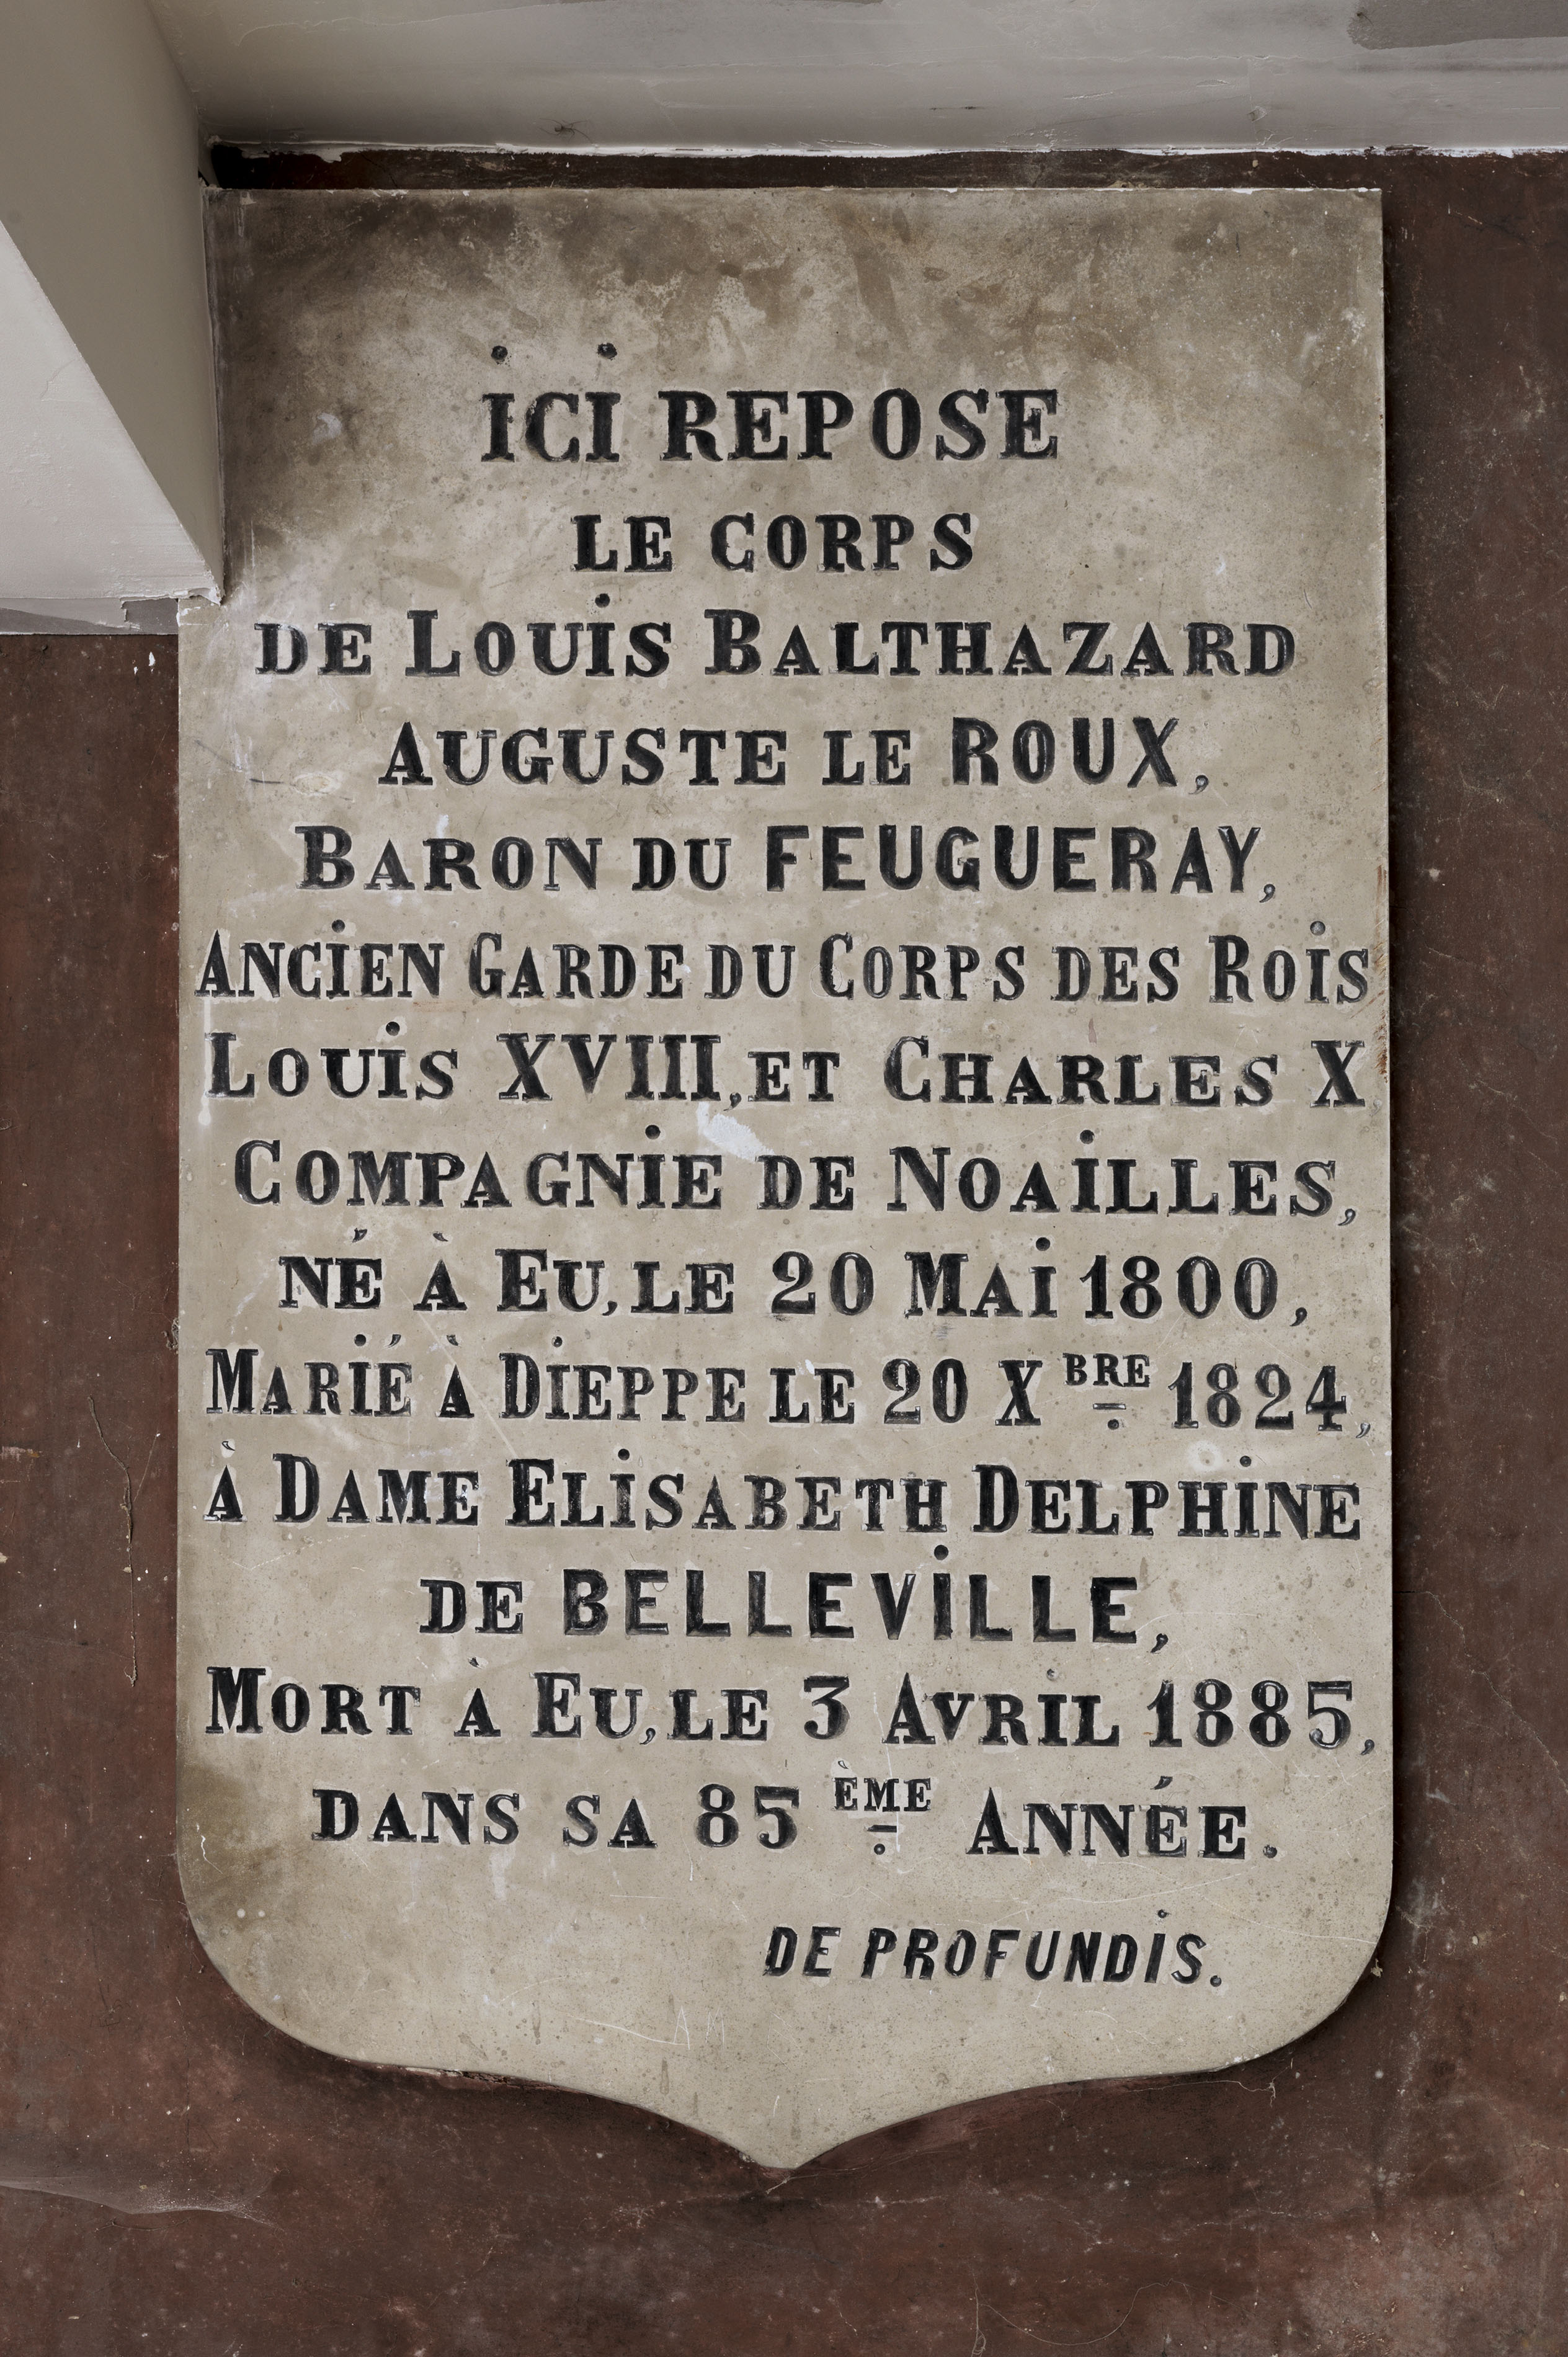 iCi REPOSE
LE CORPS
DE LOUiS BALTHAZARD
AUGUSTE LE ROUX,
BARON DU FEUGUERAY,
ANCiEN GARDE DU CORPS DES ROiS
LOUiS XVIII, ET CHARLES X
COMPAGNiE DE NOAiLLES,
NÉ À EU, LE 20 MAi 1800,
MARiÉ À DiEPPE LE 20 XBRE 1824,
À DAME ELiSABETH DELPHiNE
DE BELLEViLLE,
MORT À EU, LE 3 AVRiL 1885,
DANS SA 85ÈME ANNÉE.
DE PROFUNDiS.